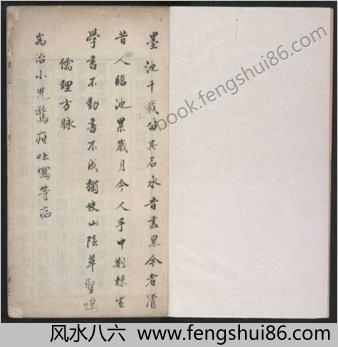 墨池千載留其名水昔盡黑今者清
昔人臨池累歲月今人手中荊棘生
學書不勤書不成獨使山陰草聖鳴
儒理方脉
耑治小兒驚疳吐寫等症
book.fengshui86.com
风水八六 www.fengshui86.com